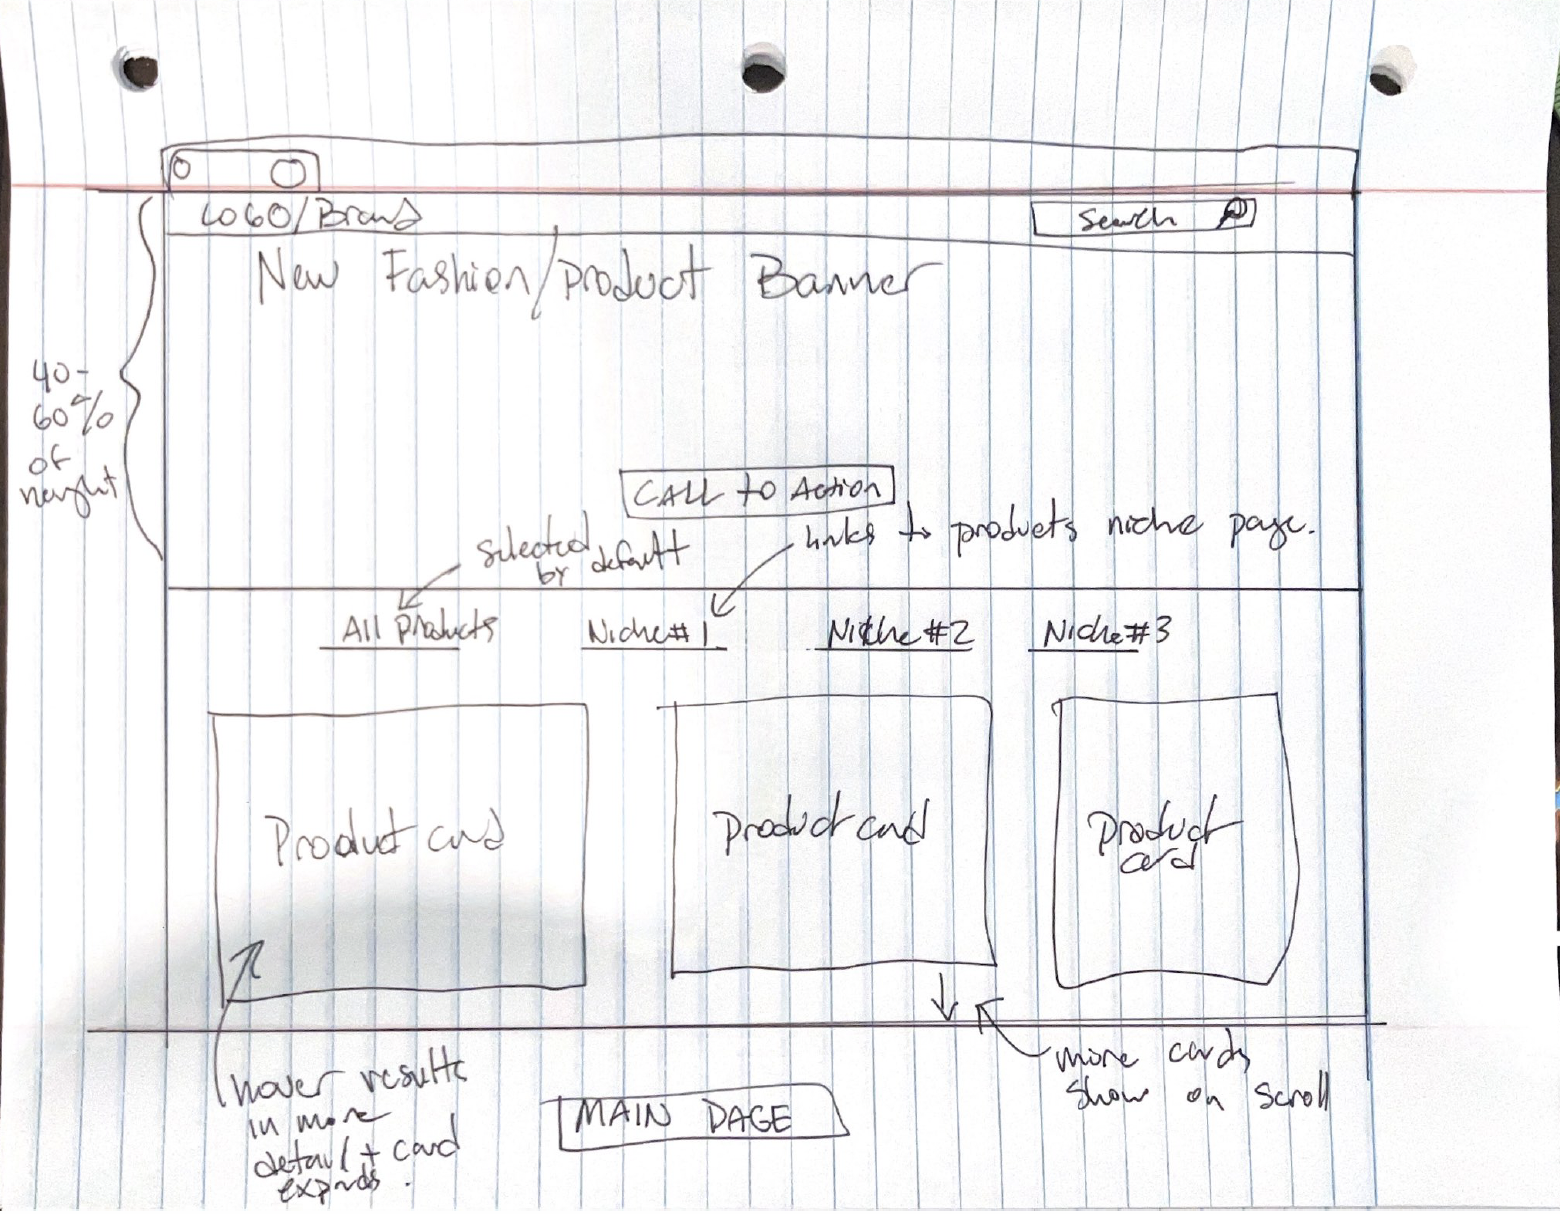 LOGO/Brand
Search
New Fashion/product Banner
40-
60%
of
height
CALL to Action
selected
by default
links to products niche page.
All Products
Niche#1
Niche#2
Niche#3
Product card
Product card
Product
card
hover results
in more
detail + card
expands.
more cards
show on scroll
MAIN PAGE